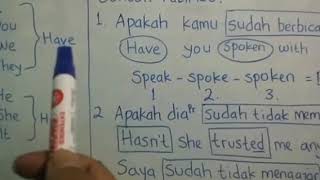 You
We
They
Have
She
It
1. Apakah kamu sudah berbica
Have you spoken with
Speak - spoke - spoken =
1 2. 3.
2 Apakah dia Pr sudah tidak mem
Hasn't she trusted me any
Saya sudah tidak